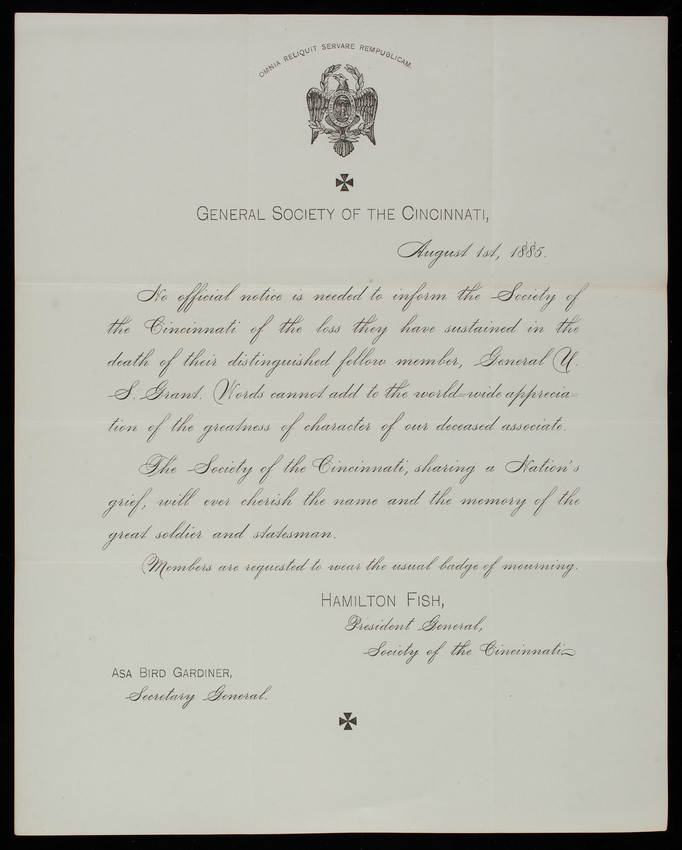 OMNIA RELIQUIT SERVARE REMPUBLICAM.
GENERAL SOCIETY OF THE CINCINNATI,
August 1st, 1885.
No official notice is needed to inform the Society of
the Cincinnati of the loss they have sustained in the
death of their distinguished fellow member, General U.
S. Grant. Words cannot add to the world=wide apprecia=
tion of the greatness of character of our deceased associate.
The Society of the Cincinnati, sharing a Nation's
grief, will ever cherish the name and the memory of the
great soldier and statesman.
Members are requested to wear the usual badge of mourning.
HAMILTON FISH,
President General,
Society of the Cincinnati
ASA BIRD GARDINER,
Secretary General.